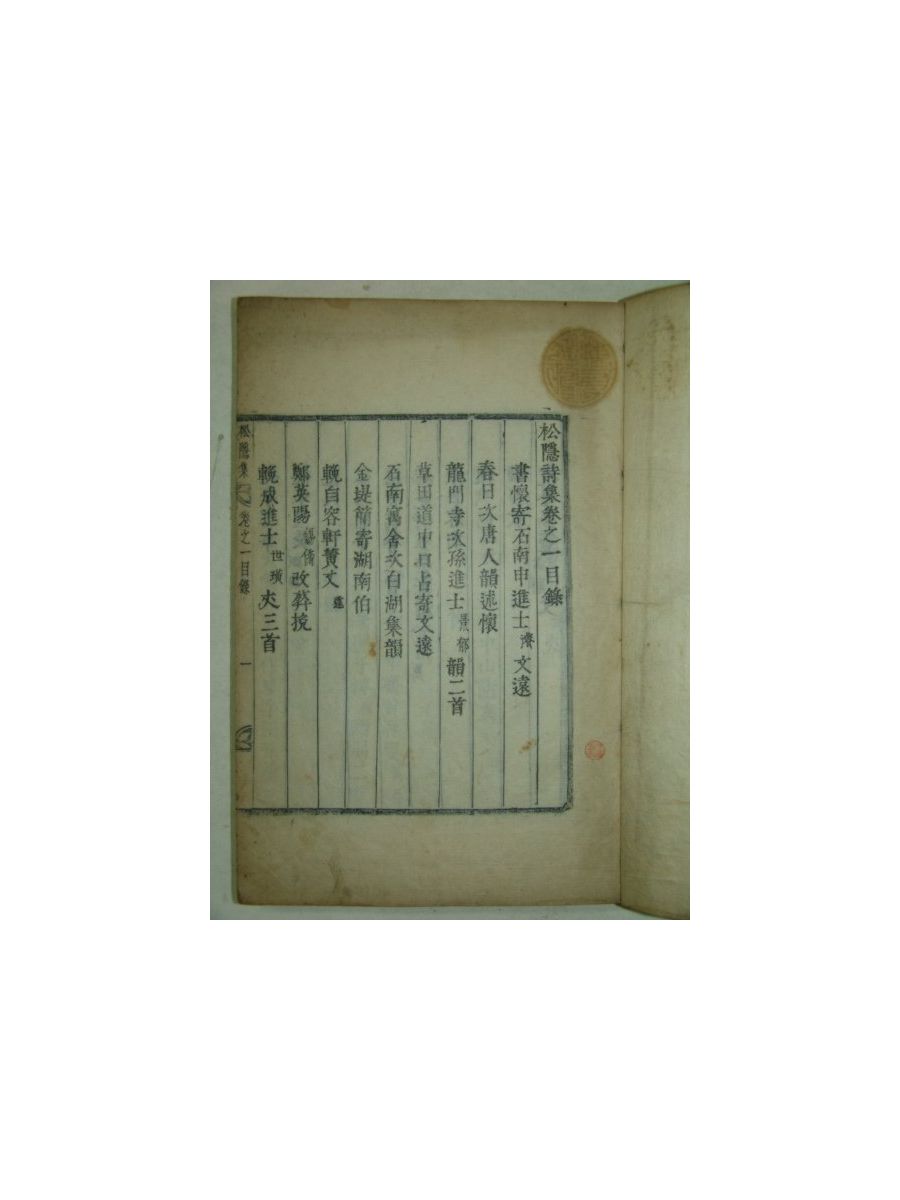 松隱詩集卷之一目錄
書懷寄石南申進士濟文遠
春日次唐人韻述懷
龍門寺次孫進士景郁韻二首
草田道中口占寄文遠
石南寓舍次白湖集韻
金堤簡寄湖南伯
輓自容軒黃丈
鄭英陽改葬挽
輓成進士世璜夫三首
松隱集 卷之一目錄 一